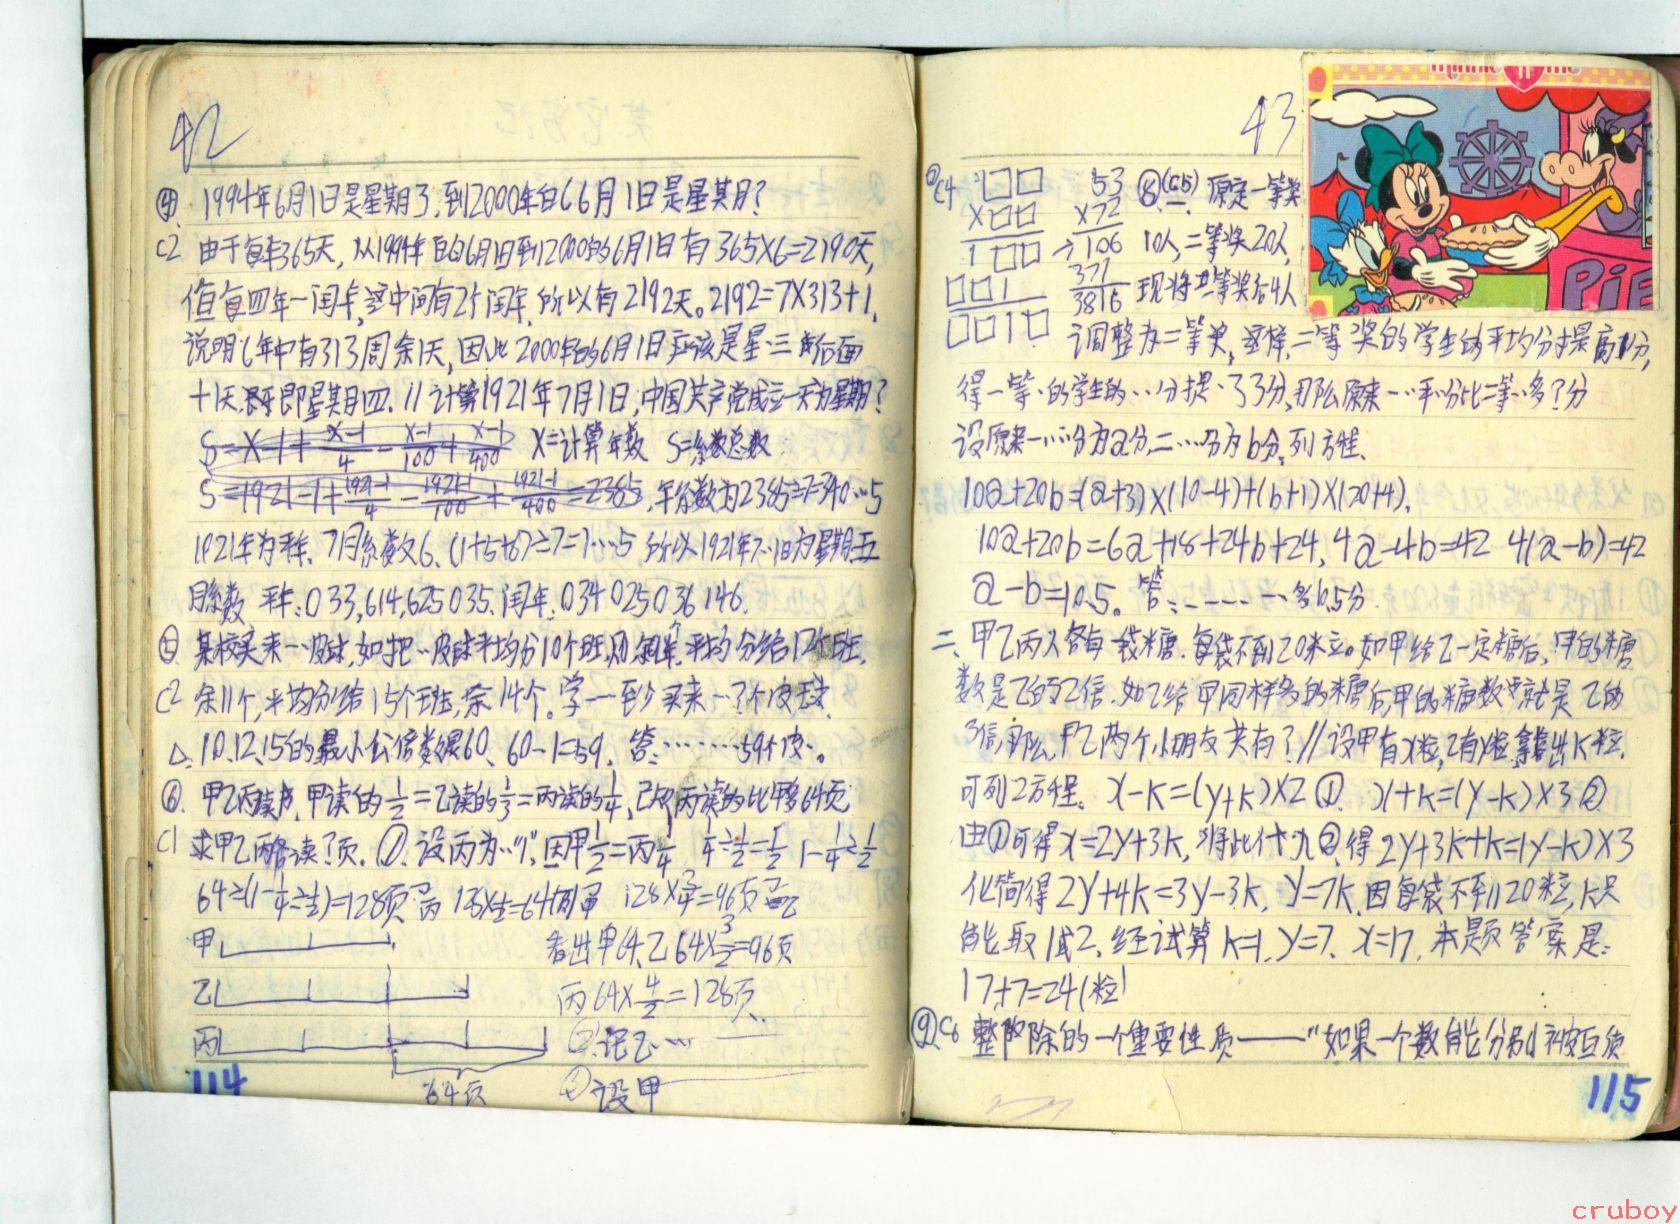 42
④ 1994年6月1日是星期3,到2000年的6月1日是星其月?
C2 由于每年365天,从1994年的6月1日到2000的6月1日有365×6=2190天,
但每四年一闰年,这中间有2个闰年,所以有2192天。2192=7×313+1,
说明6年中有313周余1天,因此2000年的6月1日应该是星三的后面
十1天,即星其月四.//计算1921年7月1日,中国共产党成立一天为星期?
S=X-1+(X-1)/4-(X-1)/100+(X-1)/400 X=计算年数 S=系数总数
S=1921-1+(1921-1)/4-(1921-1)/100+(1921-1)/400=2385,年分数为2385÷7=340…5
1921年为平年.7月系数6.(1+5+6)÷7=1…5,所以1921年7.1日为星期五
月系数 平年:033,614,625 035.闰年:034 025 036 146.
⑤ 某校买来一…皮球,如把…皮球平均分10个班,则余9个,平均分给12个班,
C2 余11个,平均分给15个班,余14个。学…至少买来…?个皮球.
△.10.12.15的最小公倍数是60、60-1=59.答:………59个皮…。
⑥.甲乙丙读书,甲读的1/2=乙读的1/3=丙读的1/4,已知丙读的比甲多64页
C1 求甲乙丙各读?页.①.设丙为"1",因甲1/2=丙1/4 1/4÷1/2=1/2 1-1/4÷1/2
64÷(1-1/4÷1/2)=128页=丙 128×1/2=64页=甲 128×3/4=96页=乙
甲 看出甲64,乙64×3/2=96页
乙 丙64×4/2=128页
丙 ②.设乙…
64页 ③设甲
114
43
C4 □□ 53 ⑧(C5) 原定一等奖
×□□ ×72 10人,二等奖20人,
1□□ → 106
□□1 371 现将一等奖后4人
□□1□ 3816
调整为二等奖,这样,二等奖的学生的平均分提高1分,
得一等…的学生的…分提…了3分,那么原来一…平…分比二等…多?分
设原来一……分为a分,二……分为b分.列方程.
10a+20b=(a+3)×(10-4)+(b+1)×(20+4).
10a+20b=6a+18+24b+24,4a-4b=42 4(a-b)=42
a-b=10.5。答:……一…多10.5分
二、甲乙丙人各有一袋米糖.每袋不到20米立。如甲给乙一定糖后,甲的糖
数是乙的2倍.如乙给甲同样多的糖后,甲的糖数就是乙的
3倍,那么,甲乙两个小朋友共有?//设甲有x粒,乙有y粒,拿出k粒.
可列2方程. x-k=(y+k)×2①. x+k=(y-k)×3②
由①可得x=2y+3k,将此代入②,得2y+3k+k=(y-k)×3
化简得2y+4k=3y-3k,y=7k.因每袋不到20粒,k只
能取1或2.经试算k=1,y=7.x=17.本题答案是:
17+7=24(粒)
⑨C6 整除的一个重要性质——"如果一个数能分别被互质
115
minnie n me
PiE
cruboy